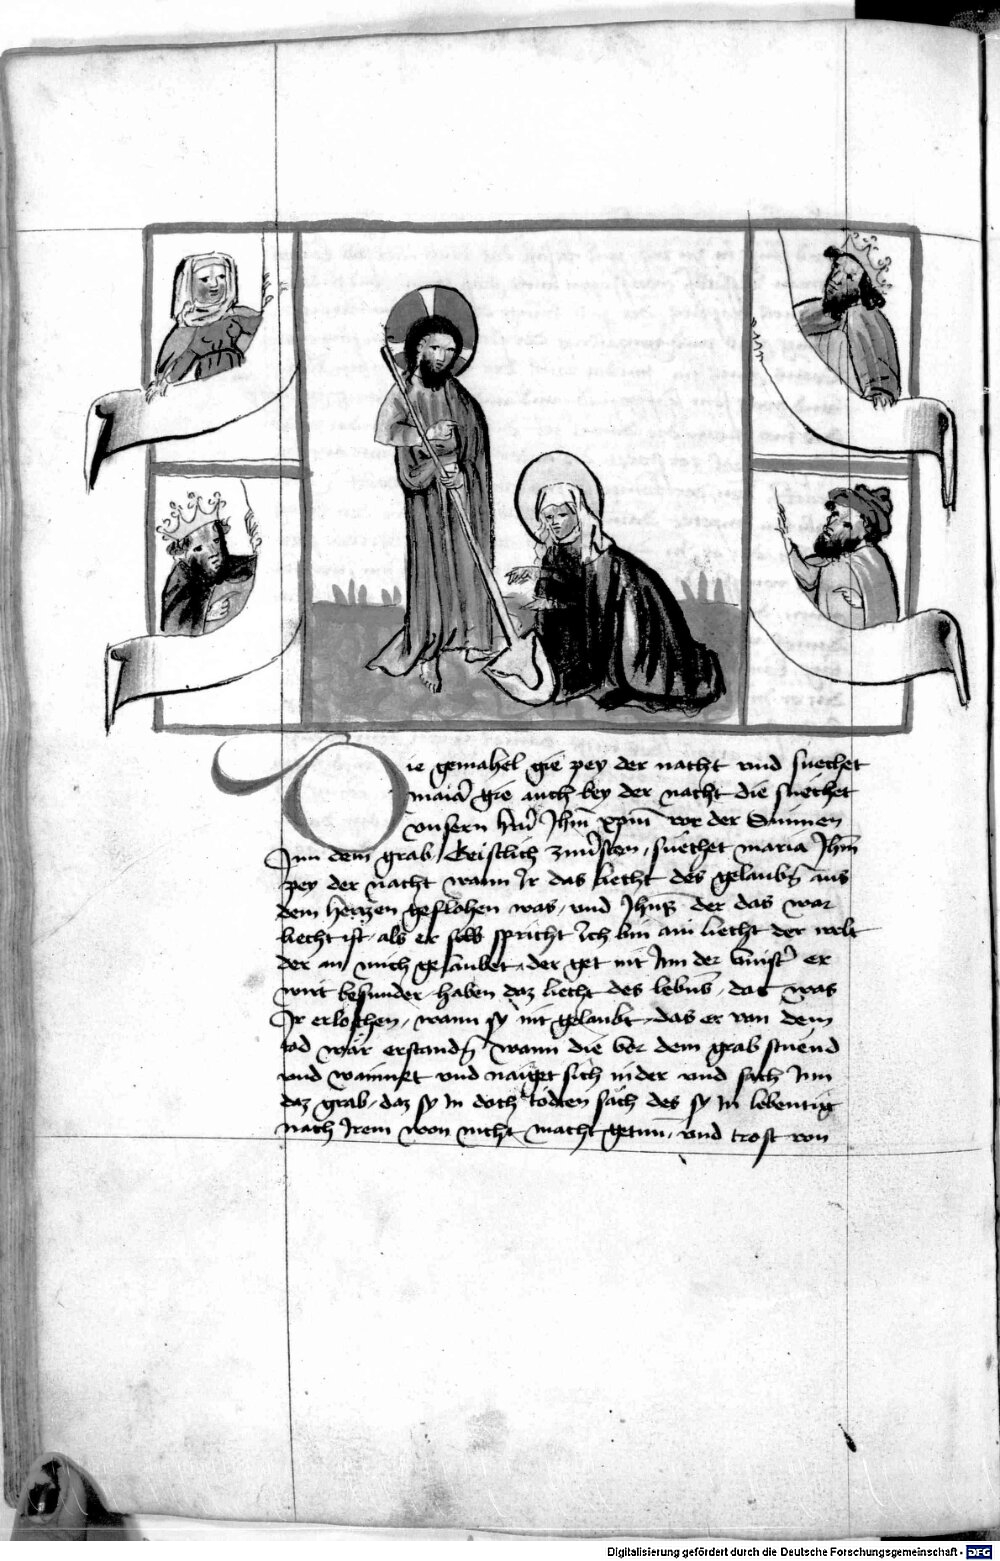 Die gemahel gie pey der nacht vnd suechet
maria gie auch bey der nacht die suechet
vnsern hern Jhm xpm vor der Sunnen
Inn dem grab Geistlich zuuersten, suechet maria Jhm
pey der nacht wann Ir das liecht des gelaubn aus
dem herczen geflohen was, vnd Jhus der das war
liecht ist, als er selb spricht Ich bin ain liecht der welt
der an mich gelaubet, der get nit Inn der vinstr er
wirt besunder haben daz liecht des lebens, daz was
Ir erloschen, wann sy nit gelaubt, das er von dem
tod wär erstandn wann die vor dem grab stuend
vnd wainnet vnd naiget sich nider vnd sach Inn
daz grab, daz sy In doch todten säch des sy In lebentig
nach Irem won nicht macht getun, vnd trost von
Digitalisierung gefördert durch die Deutsche Forschungsgemeinschaft - DFG